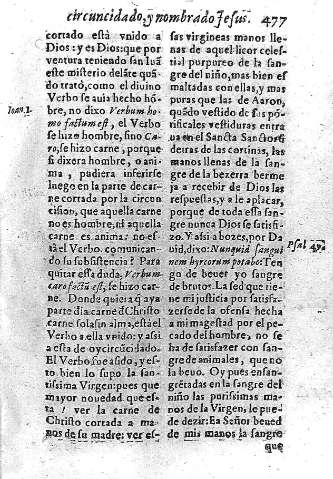 circuncidado, y nombrado Jesus. 477
cortado està vnido a
Dios: y es Dios: que por
ventura teniendo san Iuã
este misterio delãte quã
do tratò, como el diuino
Verbo se auia hecho hõ-
Ioan. 1.
bre, no dixo Verbum ho-
mo factum est, el Verbo
se hizo hombre, sino Ca-
ro, se hizo carne, porque
si dixera hombre, o ani-
ma, pudiera inferirse
luego en la parte de car-
ne cortada por la circun
cision, que aquella carne
no es hombre, ni aquella
carne es anima: no es-
tà el Verbo comunican-
do su subsistencia? Para
quitar essa duda, Verbum
caro factũ est, se hizo car-
ne. Donde quiera q̃ aya
parte dla carne dChristo
carne sola sin alma, està el
Verbo a ella vnido: y assi
a esta de oy circũcidado.
El Verbo fue asido, y es-
to bien lo supo la san-
tissima Virgen: pues que
mayor nouedad que es-
ta! ver la carne de
Christo cortada a ma-
nos de su madre: ver es-
sas virgineas manos lle-
nas de aquel licor celes-
tial purpureo de la san-
gre del niño, mas bien es
maltadas con ellas, y mas
puras que las de Aaron,
quãdo vestido de sus põ-
tificales vestiduras entra
ua en el Sancta Sanctorũ
detras de las cortinas, las
manos llenas de la san-
gre de la bezerra berme
ja a recebir de Dios las
respuestas, y a le aplacar,
porque de toda essa san-
gre nunca Dios se satisfi-
zo. Y assi a bozes, por Da
Psal 49.
uid, dixo: Nunquid sangui
nem hyrcorum potabo: Ten
go de beuer yo sangre
de brutos. La sed que tie-
ne mi justicia por satisfa-
zerse de la ofensa hecha
a mi magestad por el pe-
cado del hombre, no se
ha de satisfazer con san-
gre de animales, que no
la beuo. Oy pues ensan-
gretadas en la sangre del
niño las purissimas ma-
nos de la Virgen, le pue-
de dezir: Ea Señor beued
de mis manos la sangre
que